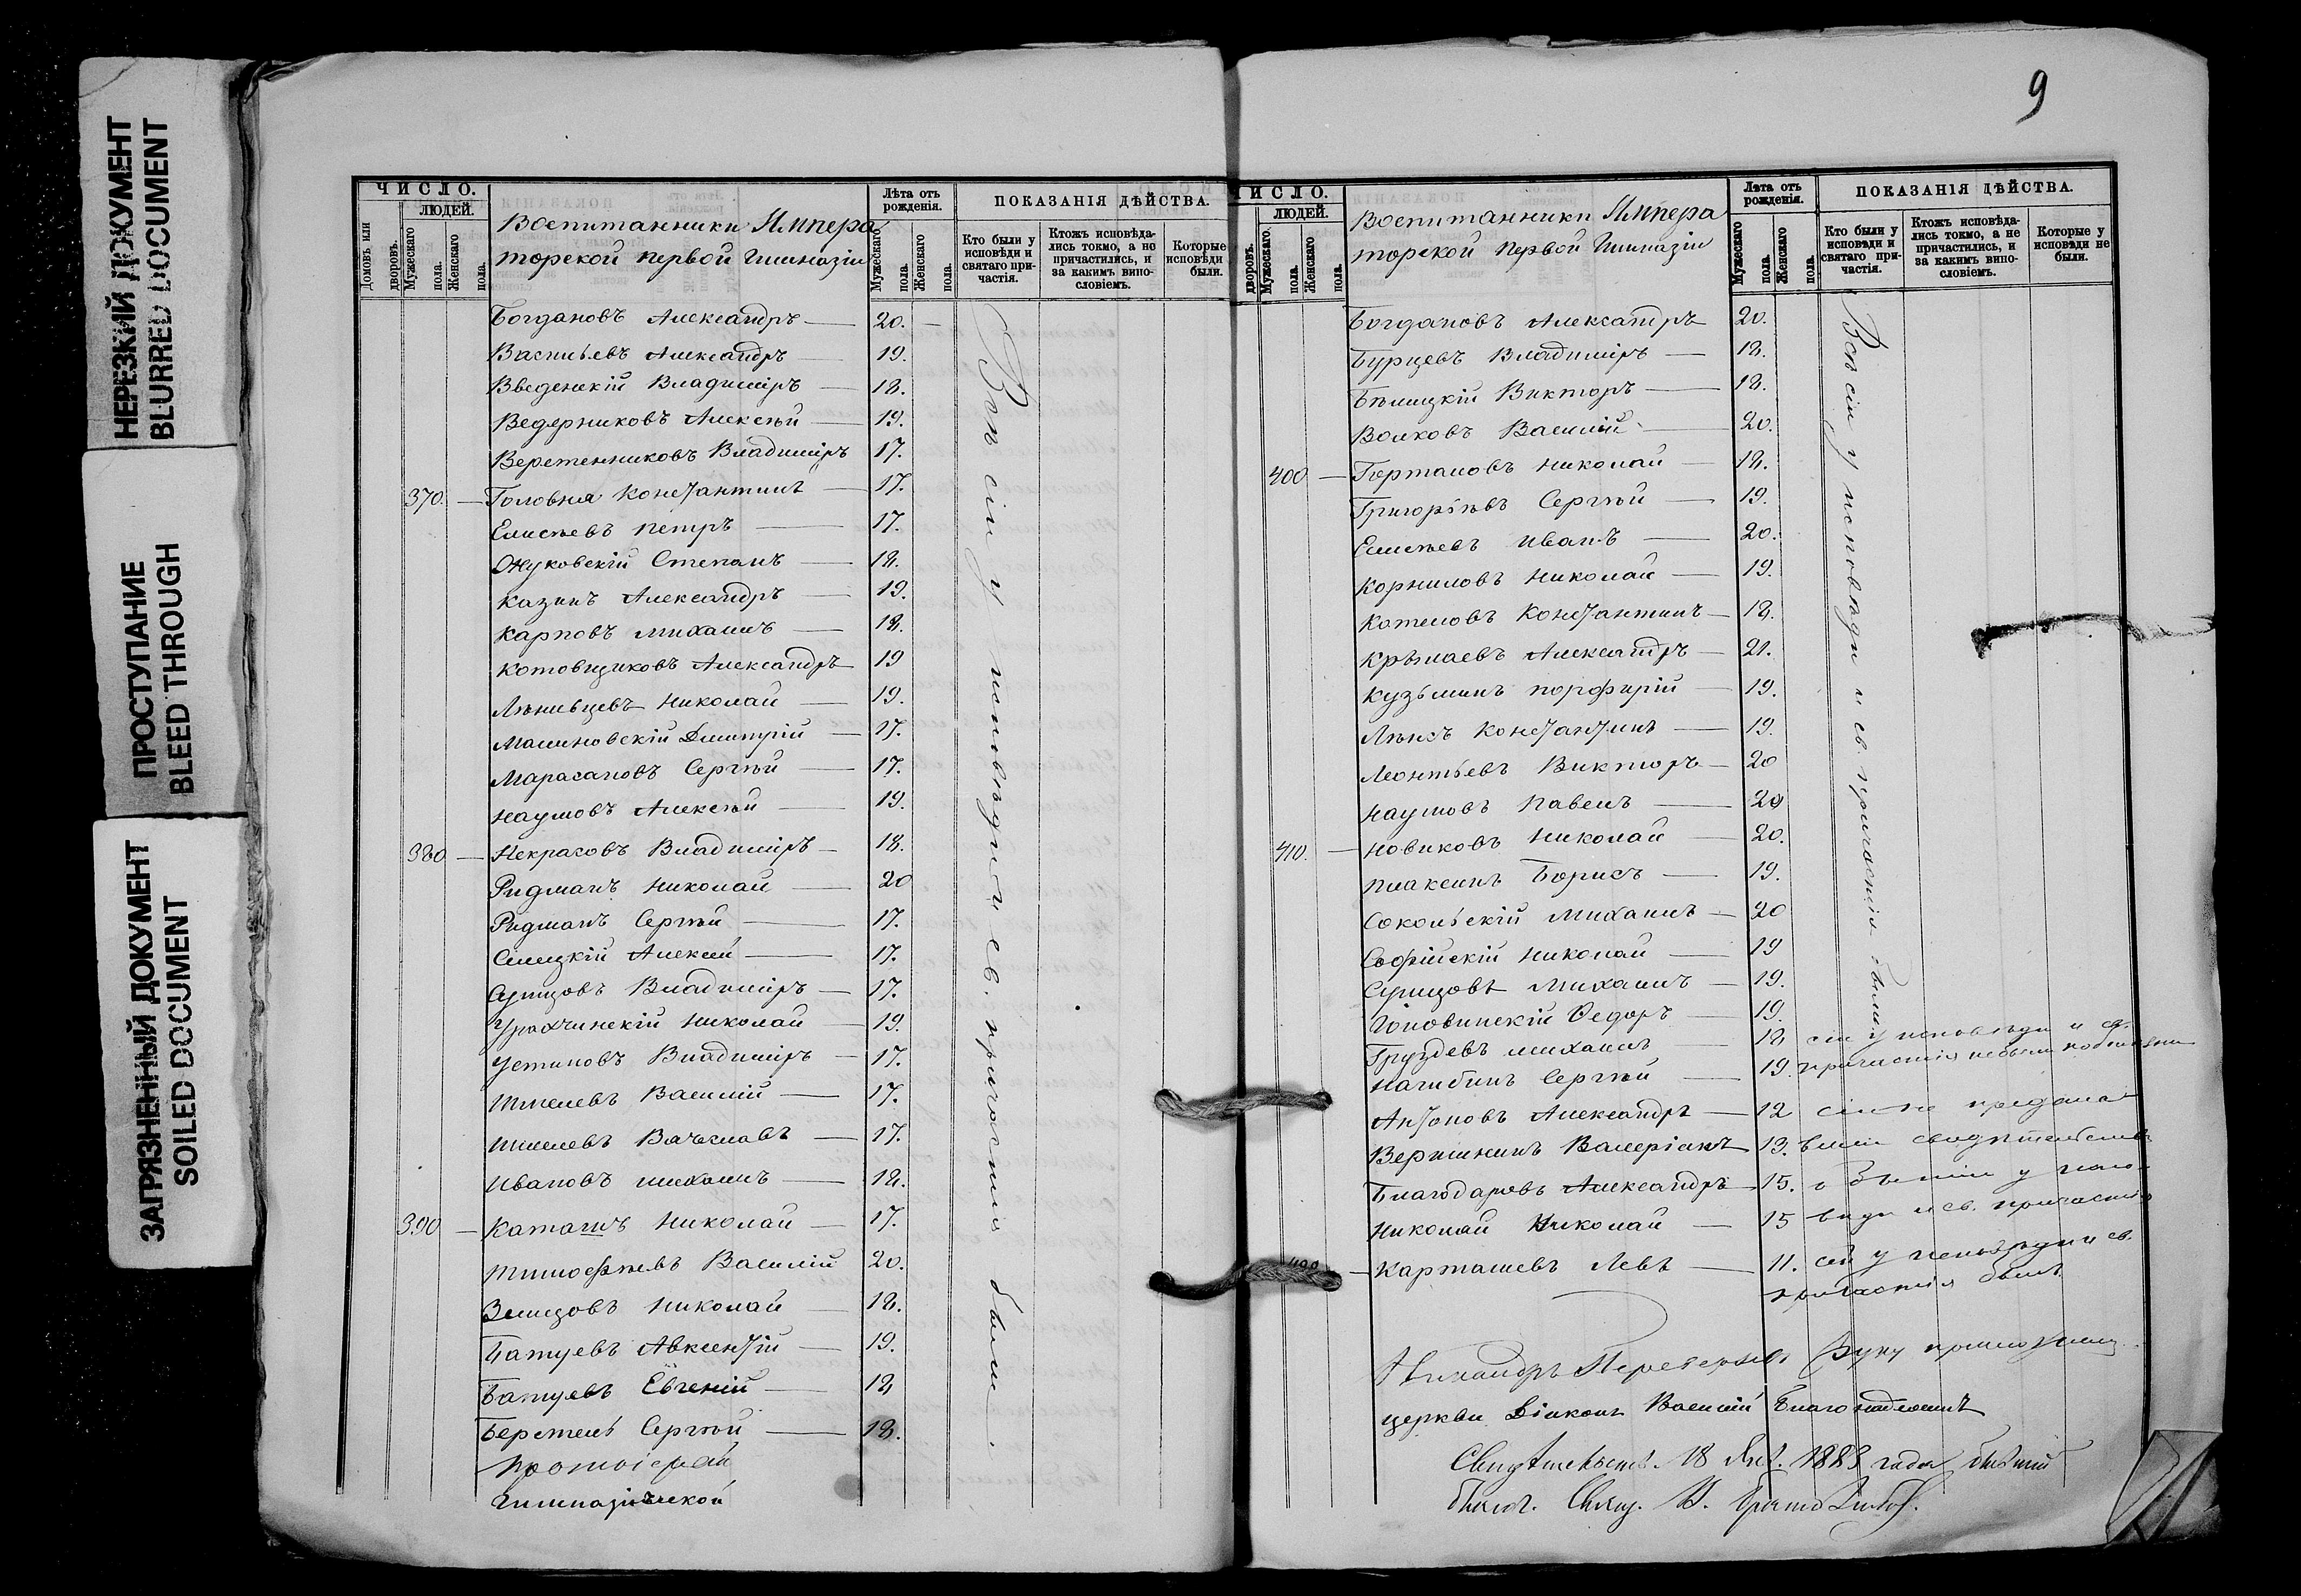 НЕРЕЗКИЙ ДОКУМЕНТ
BLURRED DOCUMENT
ПРОСТУПАНИЕ
BLEED THROUGH
ЗАГРЯЗНЕННЫЙ ДОКУМЕНТ
SOILED DOCUMENT
ЧИСЛО.
ЛЮДЕЙ.
Домовъ или дворовъ.
Мужескаго пола.
Женскаго пола.
Воспитанники Импера
торской первой Гимназіи
Лѣта отъ рожденія.
Мужескаго пола.
Женскаго пола.
ПОКАЗАНІЯ ДѢЙСТВА.
Кто были у исповѣди и святаго причастія.
Ктожъ исповѣдались токмо, а не причастились, и за какимъ винословіемъ.
Которые исповѣди были.
Богдановъ Александръ — 20. —
Васильевъ Александръ — 19.
Введенскій Владиміръ — 18.
Ведерниковъ Алексѣй — 19.
Веретенниковъ Владиміръ 17.
370. — Головня Константинъ — 17.
Елисѣевъ Петръ — 17.
Жуковскій Степанъ — 18.
Казинъ Александръ — 19.
Карповъ Михаилъ — 18.
Котовщиковъ Александръ 19
Лѣнивцевъ Николай — 19.
Малиновскій Дмитрій — 17.
Марасановъ Сергѣй — 17.
Наумовъ Алексѣй — 19.
380 — Некрасовъ Владиміръ — 18.
Ридманъ Николай — 20
Ридманъ Сергѣй — 17.
Алексѣй — 17.
Сунцовъ Владиміръ — 17.
Николай — 19.
Устиновъ Владиміръ — 17.
Шмелевъ Василій — 17.
Шмелевъ Вячеславъ — 17.
Ивановъ Михаилъ — 18.
390 — Николай — 17.
Тимофѣевъ Василій 20.
Николай — 18.
Батуевъ Авксентій — 19.
Батуевъ Евгеній — 18
Сергѣй — 18.
Всѣ сіи у исповѣди и св. причастія были.
Протоіерей
Гимназической
9
ЧИСЛО.
ЛЮДЕЙ.
дворовъ.
Мужескаго пола.
Женскаго пола.
Воспитанники Импера
торской первой Гимназіи
Лѣта отъ рожденія.
Мужескаго пола.
Женскаго пола.
ПОКАЗАНІЯ ДѢЙСТВА.
Кто были у исповѣди и святаго причастія.
Ктожъ исповѣдались токмо, а не причастились, и за какимъ винословіемъ.
Которые у исповѣди не были.
Богдановъ Александръ 20.
Бурцевъ Владиміръ — 18.
Бѣлицкій Викторъ — 18.
Волковъ Василій — 20.
400 — Николай — 18.
Григорьевъ Сергѣй — 19.
Елисѣевъ Иванъ — 20.
Корниловъ Николай — 19.
Котеловъ Константинъ — 18.
Александръ — 21.
Кузьминъ Порфирій — 19.
Константинъ — 19.
Леонтьевъ Викторъ — 20
Наумовъ Павелъ — 20
410. — Новиковъ Николай — 20.
Плаксинъ Борисъ — 19.
Сокольскій Михаилъ — 20
Софійскій Николай — 19
Сунцовъ Михаилъ — 19.
Федоръ — 19.
Груздевъ Михаилъ — 18 сіи у исповѣди и св.
Нагибинъ Сергѣй — 19. причастія небыли
Антоновъ Александръ — 12
Вершининъ Валеріанъ 13.
Благодаровъ Александръ 15.
Николай Николай — 15
Карташевъ Левъ — 11. сей у исповѣди и св.
причастія былъ.
Всѣ сіи у исповѣди и св. причастія были.
руку приложилъ
церкви Діаконъ Василій
18 1883 года